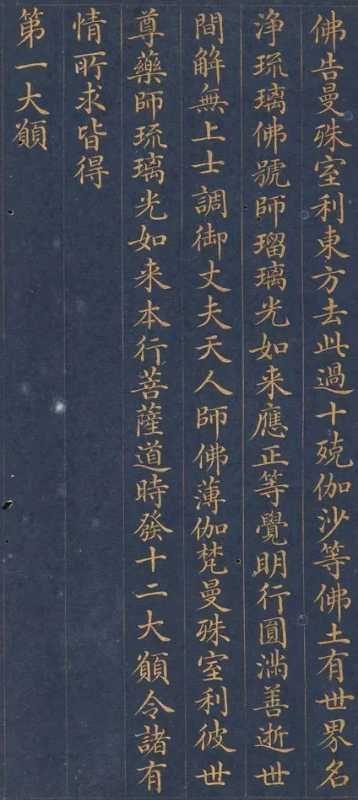 佛告曼殊室利東方去此過十殑伽沙等佛土有世界名
淨琉璃佛號師瑠璃光如来應正等覺明行圓満善逝世
間解無上士調御丈夫天人師佛薄伽梵曼殊室利彼世
尊藥師琉璃光如来本行菩薩道時發十二大願令諸有
情所求皆得
第一大願